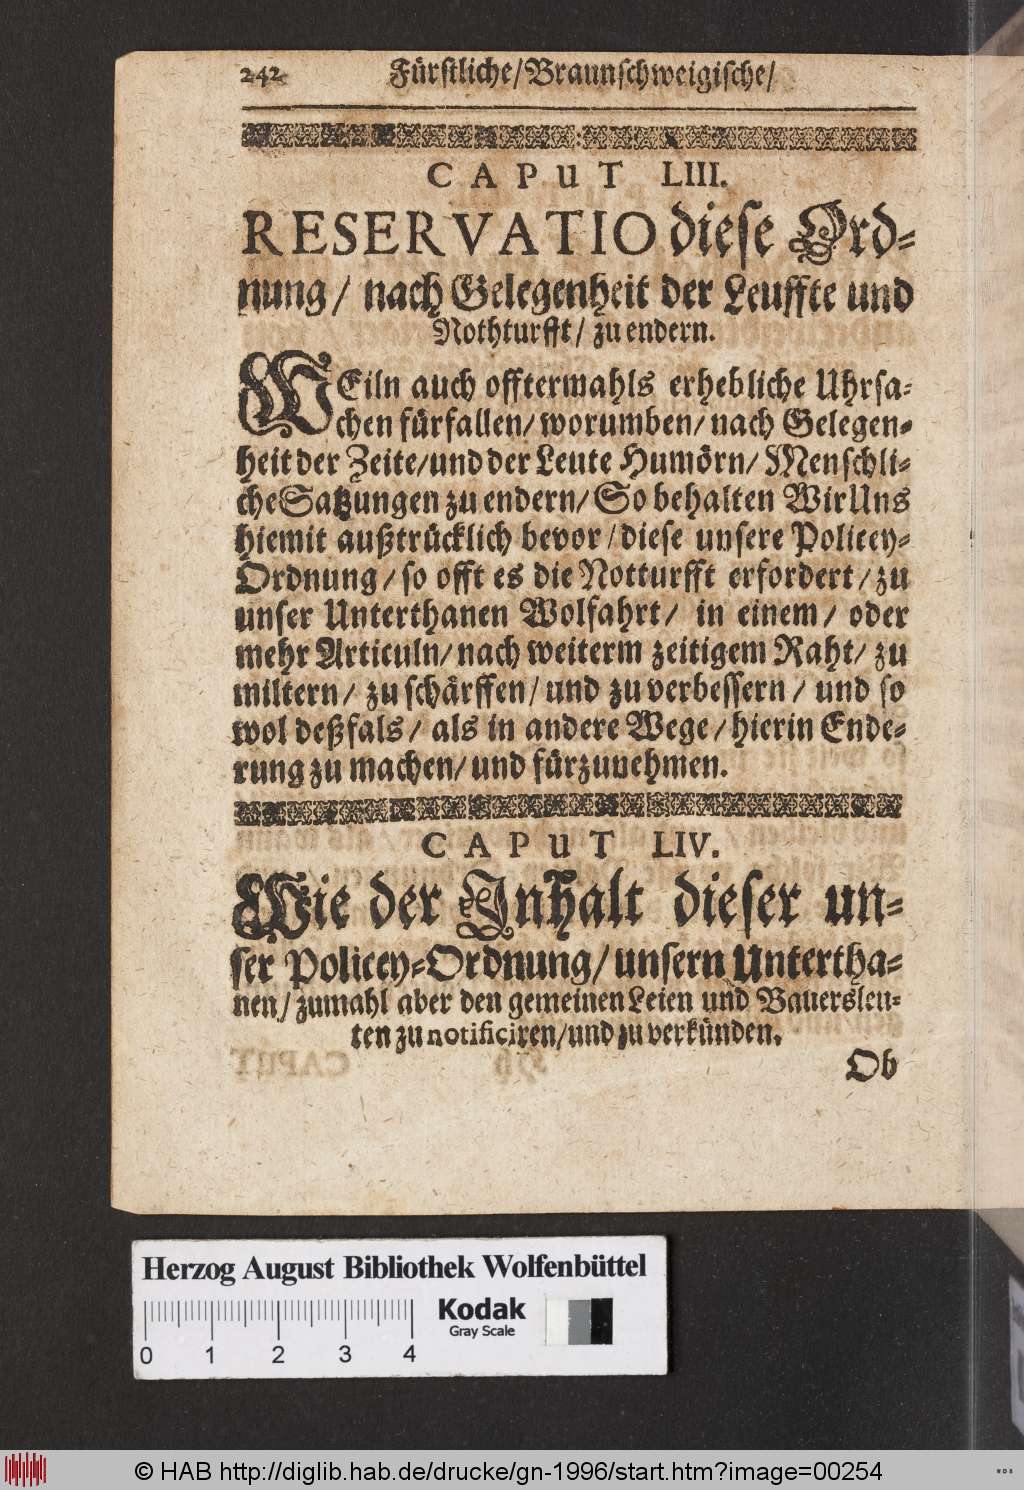 242 Fürstliche/Braunschweigische/
CAPUT LIII.
RESERVATIO diese Ord-
nung/ nach Gelegenheit der Leuffte und
Nothturfft/ zu endern.
WEiln auch offtermahls erhebliche Uhrsa-
chen fürfallen/ worumben/ nach Gelegen-
heit der Zeite/ und der Leute Humörn/ Menschli-
che Satzungen zu endern/ So behalten Wir Uns
hiemit außtrücklich bevor/ diese unsere Policey-
Ordnung/ so offt es die Notturfft erfordert/ zu
unser Unterthanen Wolfahrt/ in einem/ oder
mehr Articuln/ nach weiterm zeitigem Raht/ zu
miltern/ zu schärffen/ und zu verbessern/ und so
wol deßfals/ als in andere Wege/ hierin Ende-
rung zu machen/ und fürzunehmen.
CAPUT LIV.
Wie der Inhalt dieser un-
ser Policey-Ordnung/ unsern Untertha-
nen/ zumahl aber den gemeinen Leien und Bauersleu-
ten zu notificiren/ und zu verkünden.
Ob
Herzog August Bibliothek Wolfenbüttel
Kodak
Gray Scale
0 1 2 3 4
© HAB http://diglib.hab.de/drucke/gn-1996/start.htm?image=00254